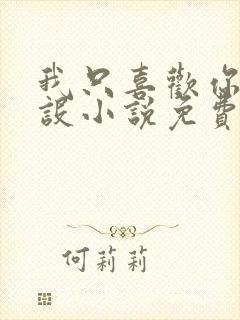 我只喜歡你
設小說免費
何莉莉